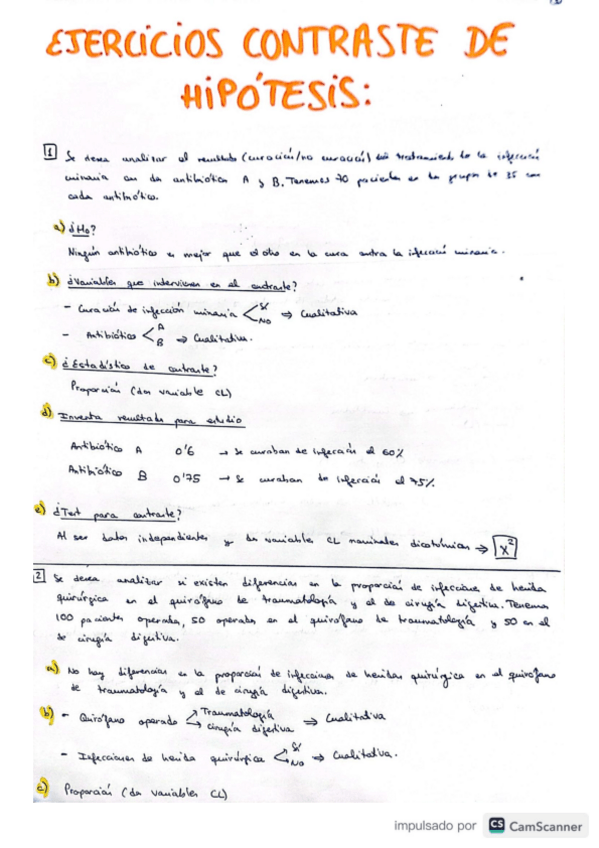 EJERCICIOS CONTRASTE DE
HIPÓTESIS:
1 Se desea analizar el resultado (curación/no curación) del tratamiento de la infección
urinaria con dos antibióticos A y B. Tenemos 70 pacientes en dos grupos de 35 con
cada antibiótico.
a) ¿H₀?
Ningún antibiótico es mejor que el otro en la cura contra la infección urinaria.
b) ¿Variables que intervienen en el contraste?
- Curación de infección urinaria < Sí No ⇒ Cualitativa
- Antibiótico < A B ⇒ Cualitativa.
c) ¿Estadístico de contraste?
Proporción (dos variables CL)
d) Inventa resultado para estudio
Antibiótico A 0'6 → Se curaban de infección el 60%
Antibiótico B 0'75 → Se curaban de infección el 75%.
e) ¿Test para contraste?
Al ser datos independientes y dos variables CL nominales dicotómicas → X²
2 Se desea analizar si existen diferencias en la proporción de infecciones de herida
quirúrgica en el quirófano de traumatología y el de cirugía digestiva. Tenemos
100 pacientes operados, 50 operados en el quirófano de traumatología y 50 en el
de cirugía digestiva.
a) No hay diferencias en la proporción de infecciones de heridas quirúrgica en el quirófano
de traumatología y el de cirugía digestiva.
b) - Quirófano operado Traumatología cirugía digestiva ⇒ Cualitativa
- Infecciones de herida quirúrgica Sí No ⇒ Cualitativa.
c) Proporción (dos variables CL)
impulsado por CS CamScanner